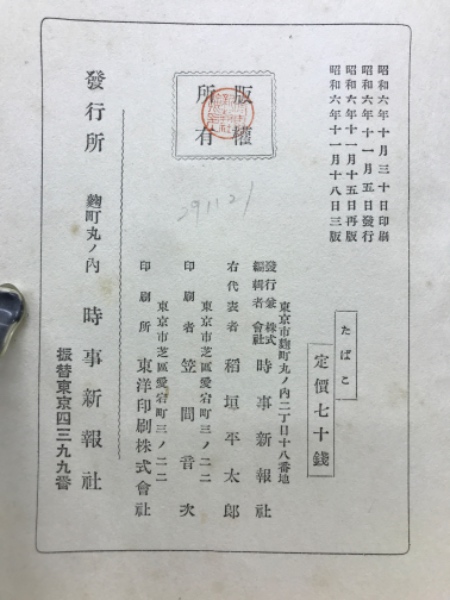 昭和六年十月三十日印刷
昭和六年十一月五日發行
昭和六年十一月十五日再版
昭和六年十一月十八日三版
版權
所有
291121
たばこ
定價七十錢
東京市麴町丸ノ內二丁目十八番地
發行兼編輯者 株式會社 時事新報社
右代表者 稻垣平太郎
東京市芝區愛宕町三ノ二二
印刷者 笠間音次
東京市芝區愛宕町三ノ二二
印刷所 東洋印刷株式會社
發行所 麴町丸ノ內 時事新報社
振替東京四三九九番